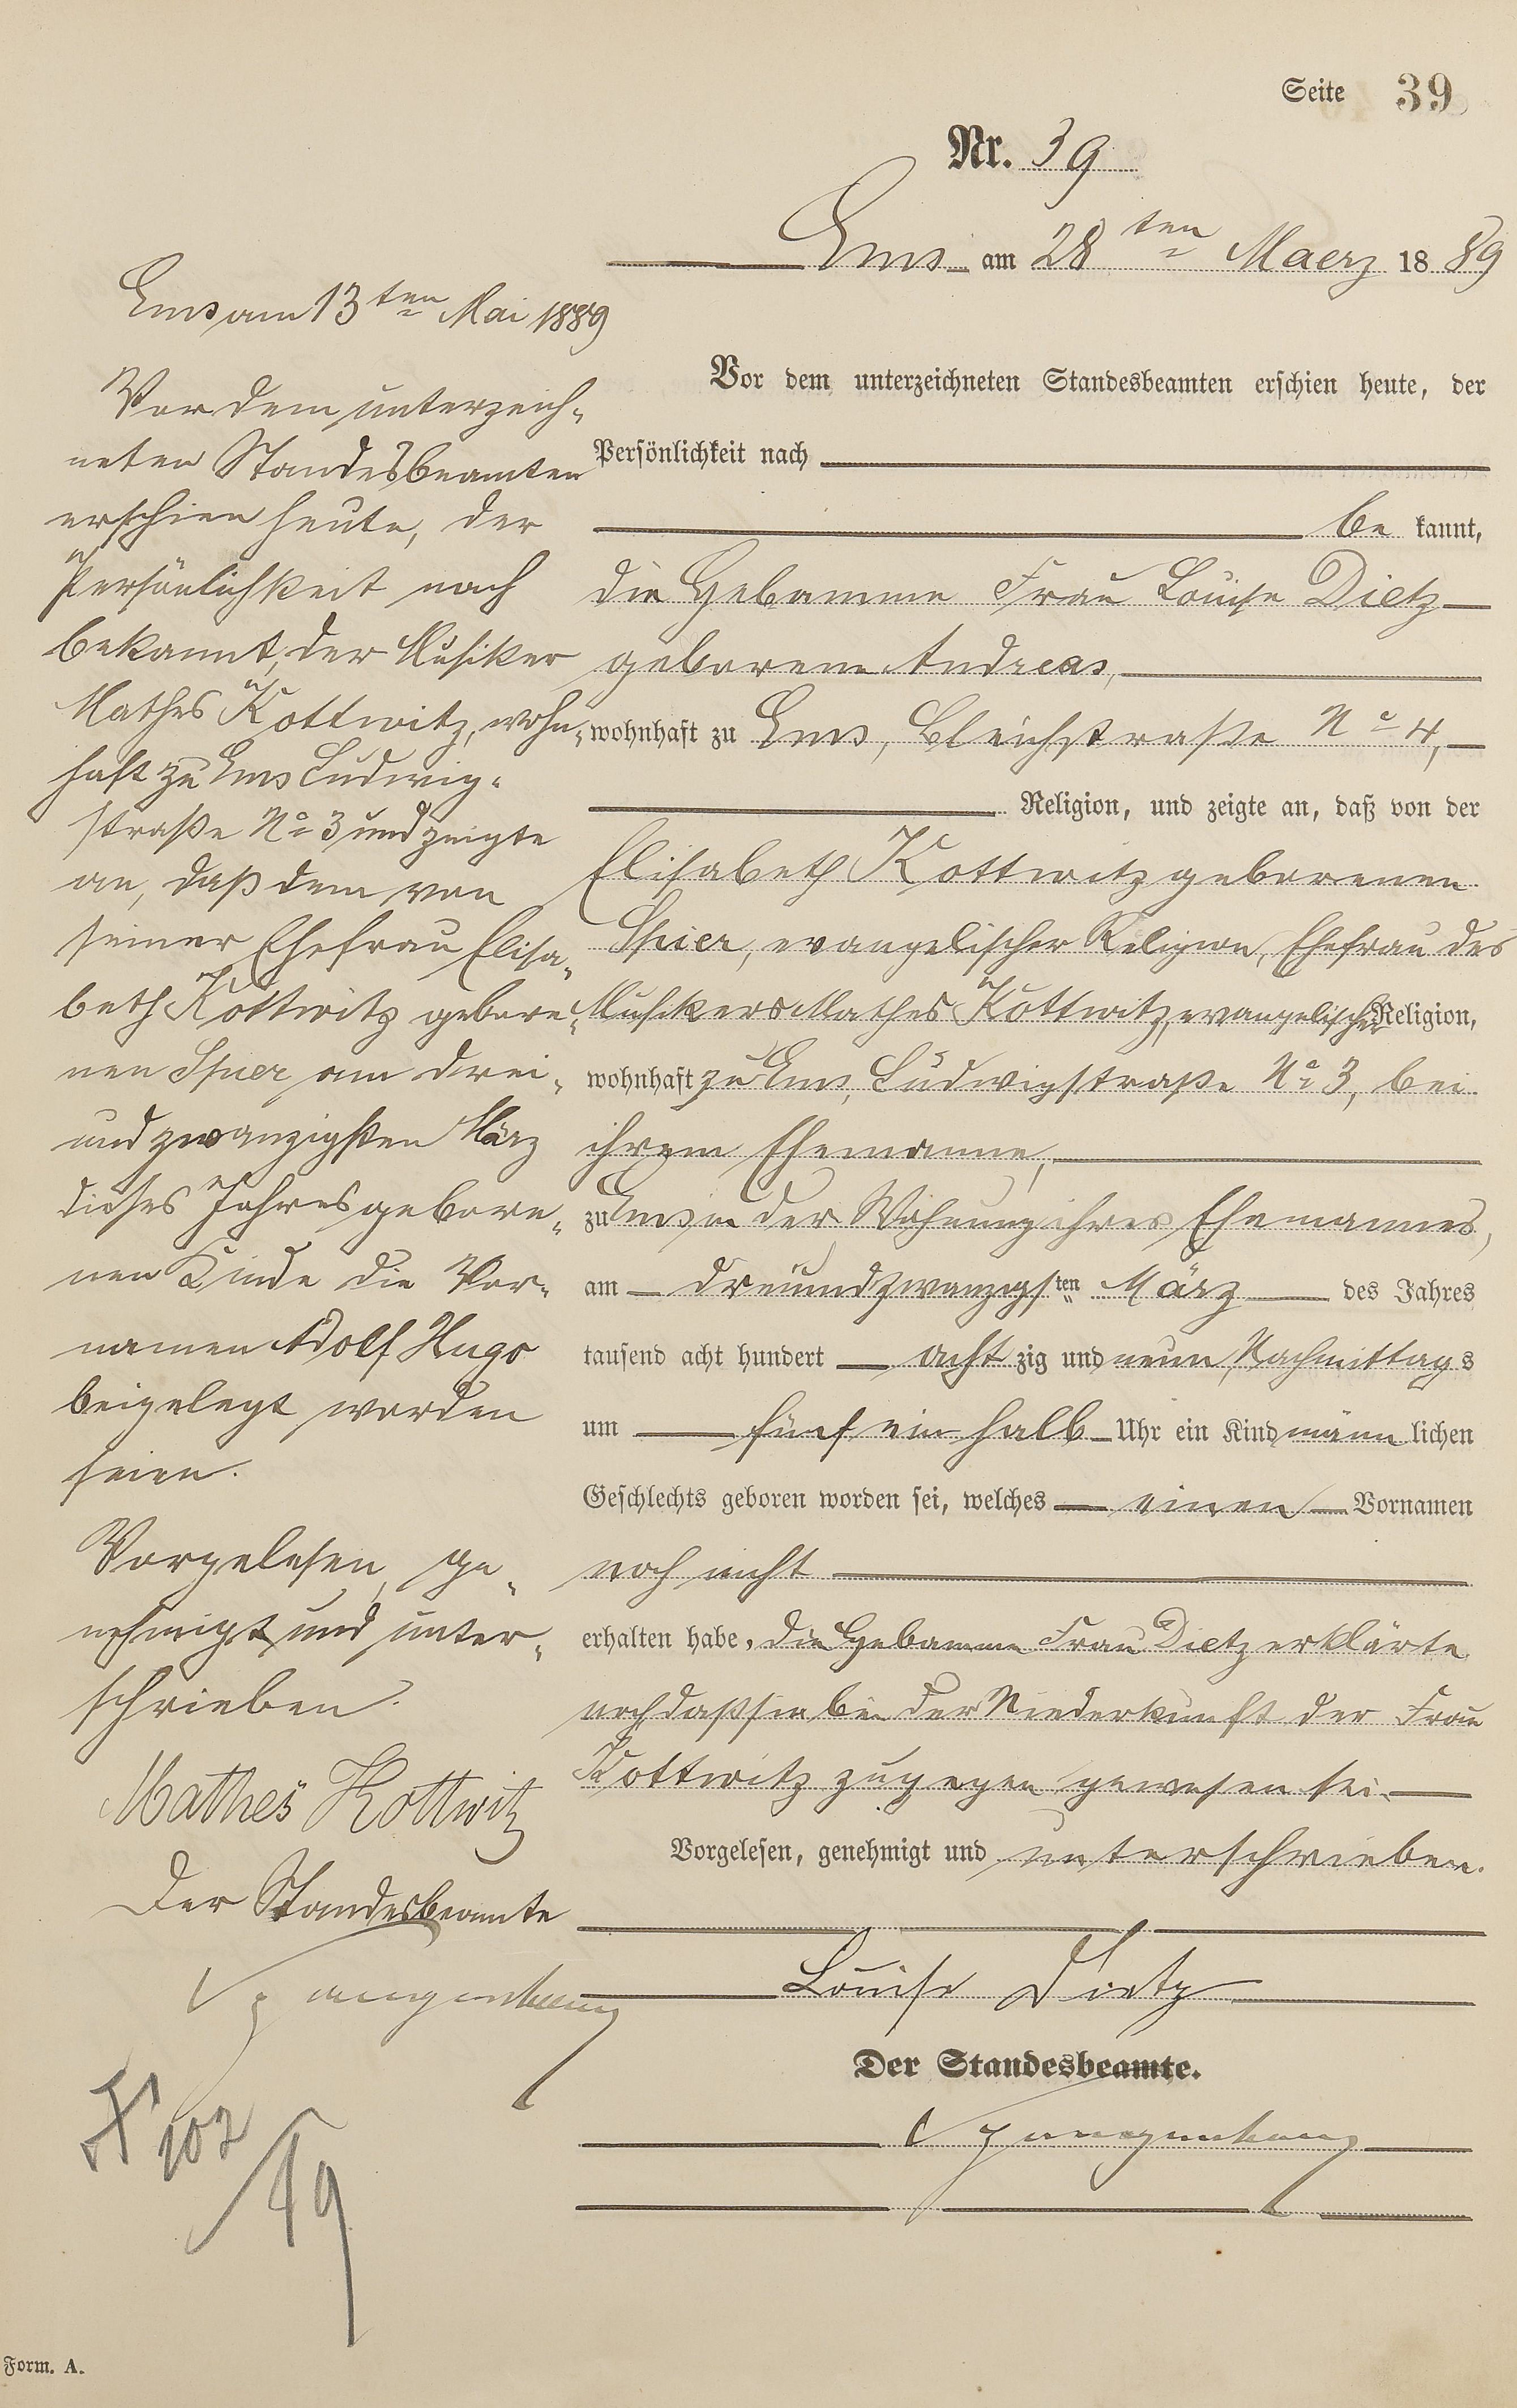 Seite 39
Nr. 39
Ems am 28ten Maerz 1889
Vor dem unterzeichneten Standesbeamten erschien heute, der
Persönlichkeit nach
be kannt,
die Hebamme Frau Louise Dietz
geborene Andreas,
wohnhaft zu Ems, Bleichstraße No 4,
Religion, und zeigte an, daß von der
Elisabeth Kottwitz geborenen
Spier, evangelischer Religion, Ehefrau des
Musikers Mathes Kottwitz, evangelischer Religion,
wohnhaft zu Ems, Ludwigstraße No 3, bei
ihrem Ehemanne,
zu Ems in der Wohnung ihres Ehemannes,
am dreiundzwanzigsten März des Jahres
tausend acht hundert acht zig und neun, Nachmittags
um fünf ein halb Uhr ein Kind männ lichen
Geschlechts geboren worden sei, welches einen Vornamen
noch nicht
erhalten habe. Die Hebamme Frau Dietz erklärte
noch daß sie bei der Niederkunft der Frau
Kottwitz zugegen gewesen sei.
Vorgelesen, genehmigt und unterschrieben.
Louise Dietz
Der Standesbeamte.
Ems am 13ten Mai 1889
Vor dem unterzeich-
neten Standesbeamten
erschien heute, der
Persönlichkeit nach
bekannt, der Musiker
Mathes Kottwitz, wohn-
haft zu Ems Ludwig-
straße No 3 und zeigte
an, daß dem von
seiner Ehefrau Elisa-
beth Kottwitz gebore-
nen Spier am drei-
und zwanzigsten März
dieses Jahres gebore-
nen Kinde die Vor-
namen Adolf Hugo
beigelegt worden
seien.
Vorgelesen, ge-
nehmigt und unter-
schrieben.
Mathes Kottwitz
Der Standesbeamte
Form. A.